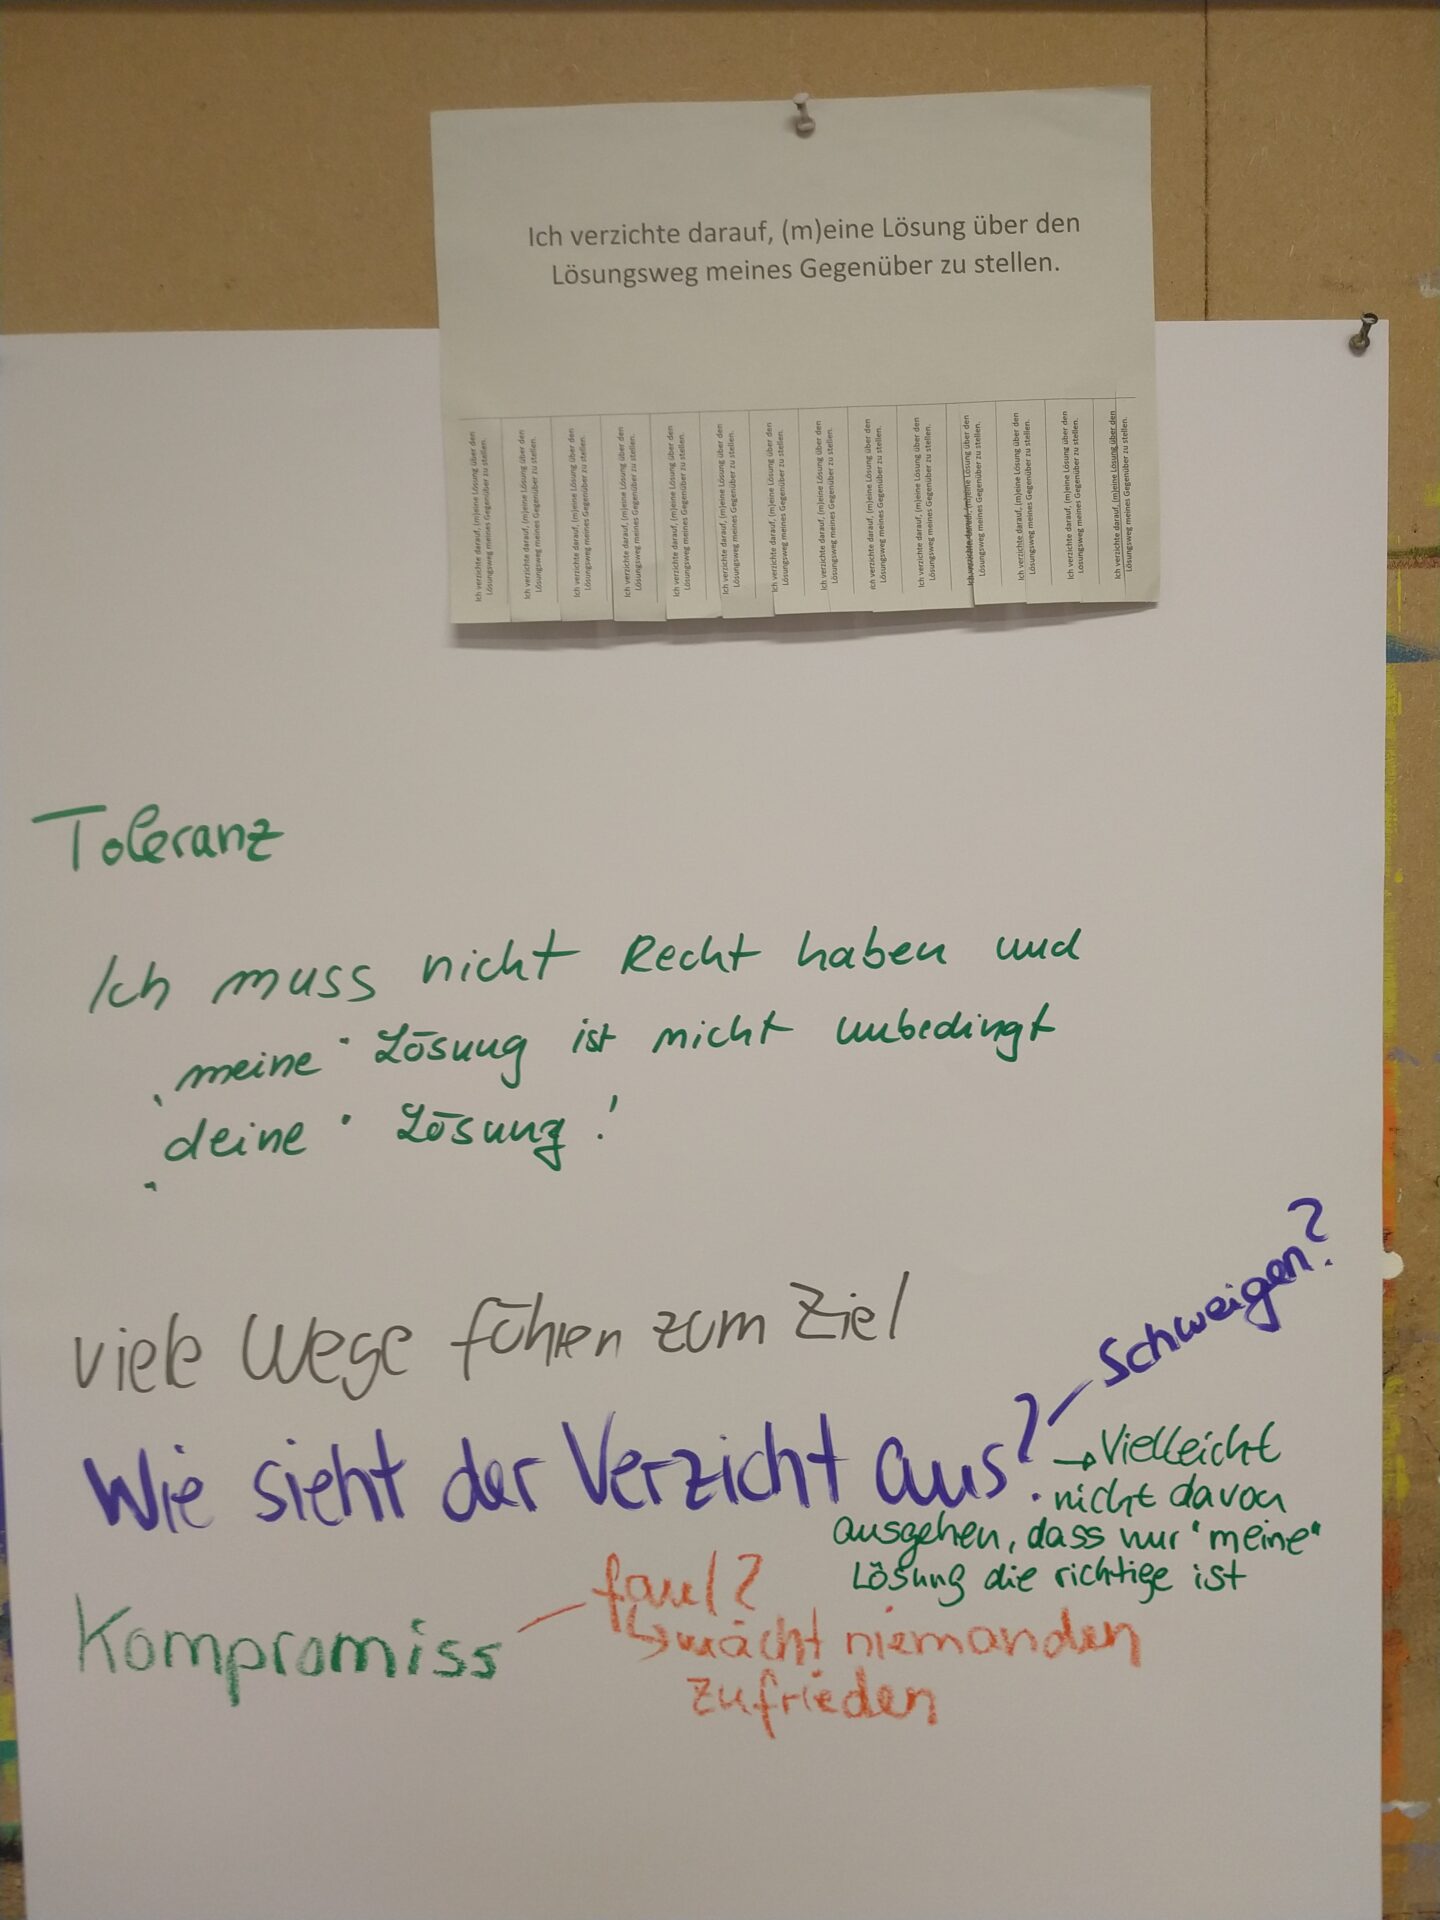 Ich verzichte darauf, (m)eine Lösung über den
Lösungsweg meines Gegenüber zu stellen.
Ich verzichte darauf, (m)eine Lösung über den
Lösungsweg meines Gegenüber zu stellen.
Ich verzichte darauf, (m)eine Lösung über den
Lösungsweg meines Gegenüber zu stellen.
Ich verzichte darauf, (m)eine Lösung über den
Lösungsweg meines Gegenüber zu stellen.
Ich verzichte darauf, (m)eine Lösung über den
Lösungsweg meines Gegenüber zu stellen.
Ich verzichte darauf, (m)eine Lösung über den
Lösungsweg meines Gegenüber zu stellen.
Ich verzichte darauf, (m)eine Lösung über den
Lösungsweg meines Gegenüber zu stellen.
Ich verzichte darauf, (m)eine Lösung über den
Lösungsweg meines Gegenüber zu stellen.
Ich verzichte darauf, (m)eine Lösung über den
Lösungsweg meines Gegenüber zu stellen.
Ich verzichte darauf, (m)eine Lösung über den
Lösungsweg meines Gegenüber zu stellen.
Ich verzichte darauf, (m)eine Lösung über den
Lösungsweg meines Gegenüber zu stellen.
Ich verzichte darauf, (m)eine Lösung über den
Lösungsweg meines Gegenüber zu stellen.
Ich verzichte darauf, (m)eine Lösung über den
Lösungsweg meines Gegenüber zu stellen.
Ich verzichte darauf, (m)eine Lösung über den
Lösungsweg meines Gegenüber zu stellen.
Ich verzichte darauf, (m)eine Lösung über den
Lösungsweg meines Gegenüber zu stellen.
Toleranz
Ich muss nicht Recht haben und
"meine" Lösung ist nicht unbedingt
"deine" Lösung!
viele Wege führen zum Ziel
Wie sieht der Verzicht aus?
Schweigen?
→ Vielleicht
nicht davon
ausgehen, dass nur "meine"
Lösung die richtige ist
Kompromiss
faul?
↳ macht niemanden
zufrieden